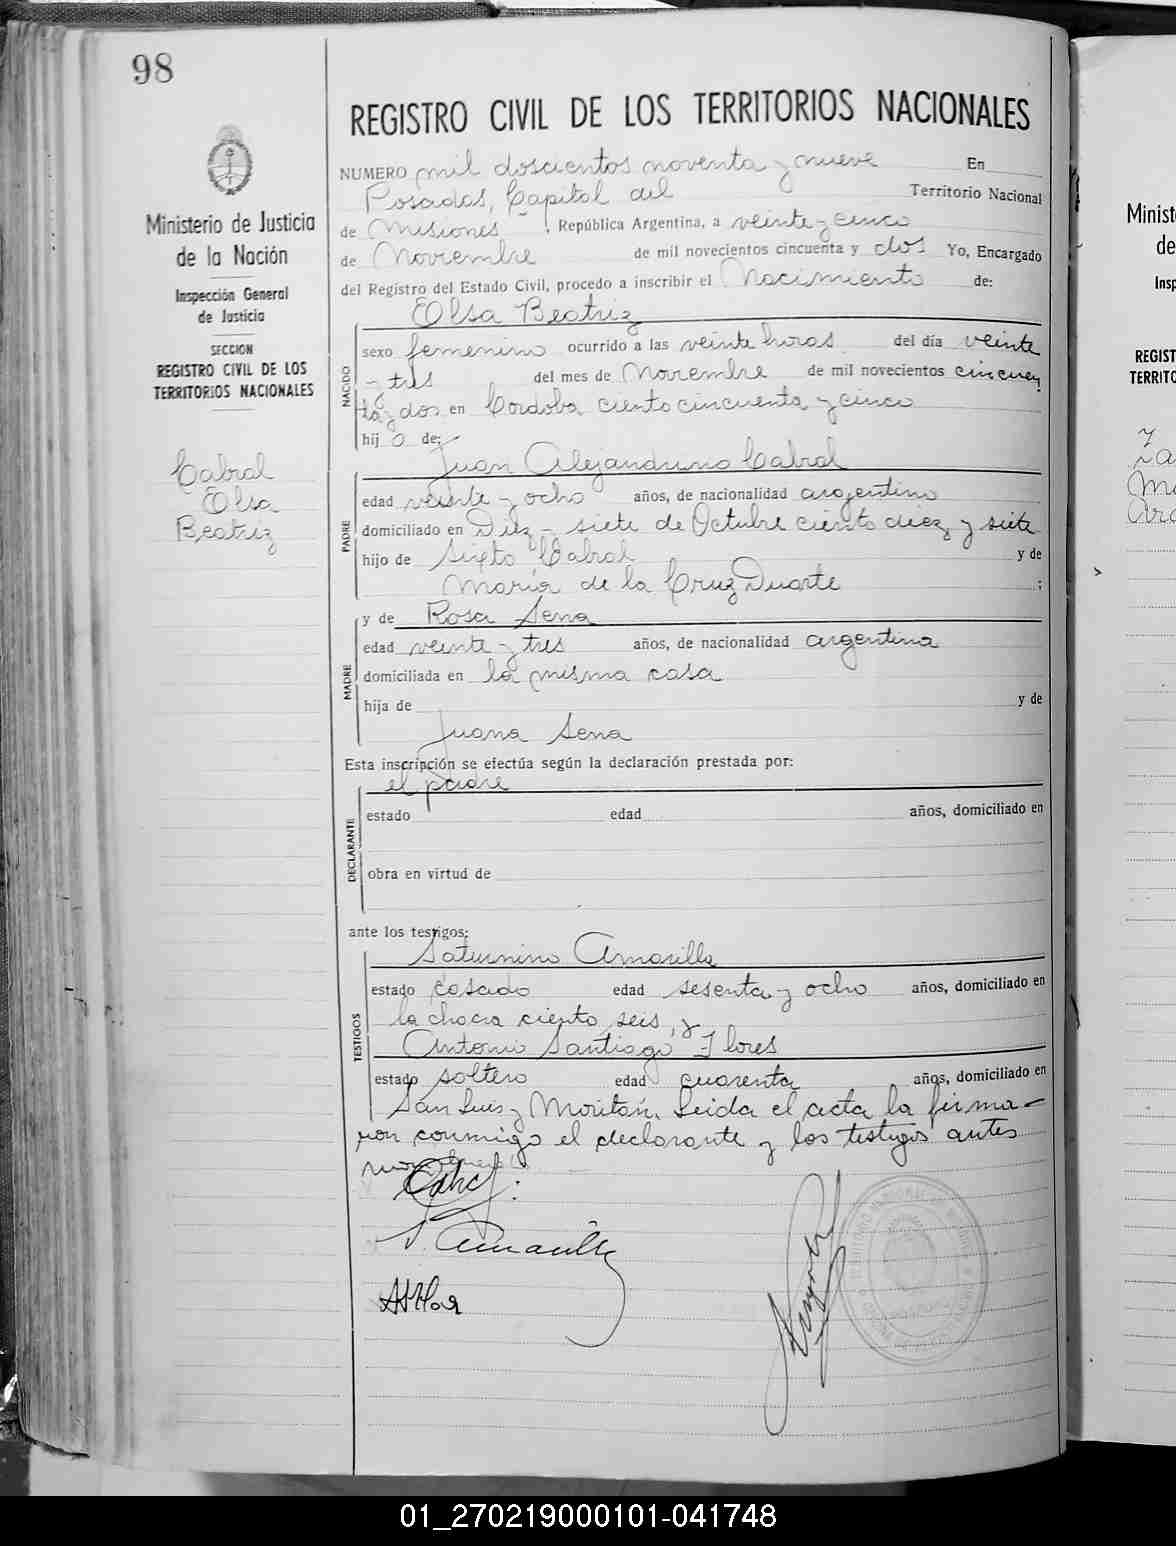 98
REGISTRO CIVIL DE LOS TERRITORIOS NACIONALES
Ministerio de Justicia
de la Nación
Inspección General
de Justicia
SECCION
REGISTRO CIVIL DE LOS
TERRITORIOS NACIONALES
Cabral
Elsa
Beatriz
NUMERO mil doscientos noventa y nueve En
Posadas, Capital del Territorio Nacional
de Misiones, República Argentina, a veinte y cinco
de Noviembre de mil novecientos cincuenta y dos Yo, Encargado
del Registro del Estado Civil, procedo a inscribir el Nacimiento de:
Elsa Beatriz
NACIDO
sexo femenino ocurrido a las veinte horas del día veinte
y tres del mes de Noviembre de mil novecientos cincuen
ta y dos en Cordoba ciento cincuenta y cinco
hij a de:
Juan Alejandrino Cabral
PADRE
edad veinte y ocho años, de nacionalidad argentino
domiciliado en Diez y siete de Octubre ciento diez y siete
hijo de Sixto Cabral y de
María de la Cruz Duarte ;
y de Rosa Sena
MADRE
edad veinte y tres años, de nacionalidad argentina
domiciliada en la misma casa
hija de y de
Juana Sena
Esta inscripción se efectúa según la declaración prestada por:
el padre
DECLARANTE
estado edad años, domiciliado en
obra en virtud de
ante los testigos:
Saturnino Amarilla
TESTIGOS
estado casado edad sesenta y ocho años, domiciliado en
la chacra ciento seis, y
Antonio Santiago Flores
estado soltero edad cuarenta años, domiciliado en
San Luis y Moritán. Leida el acta la firma-
ron conmigo el declarante y los testigos antes
S. Amarilla
Minist
de
Insp
REGIST
TERRITO
01_270219000101-041748